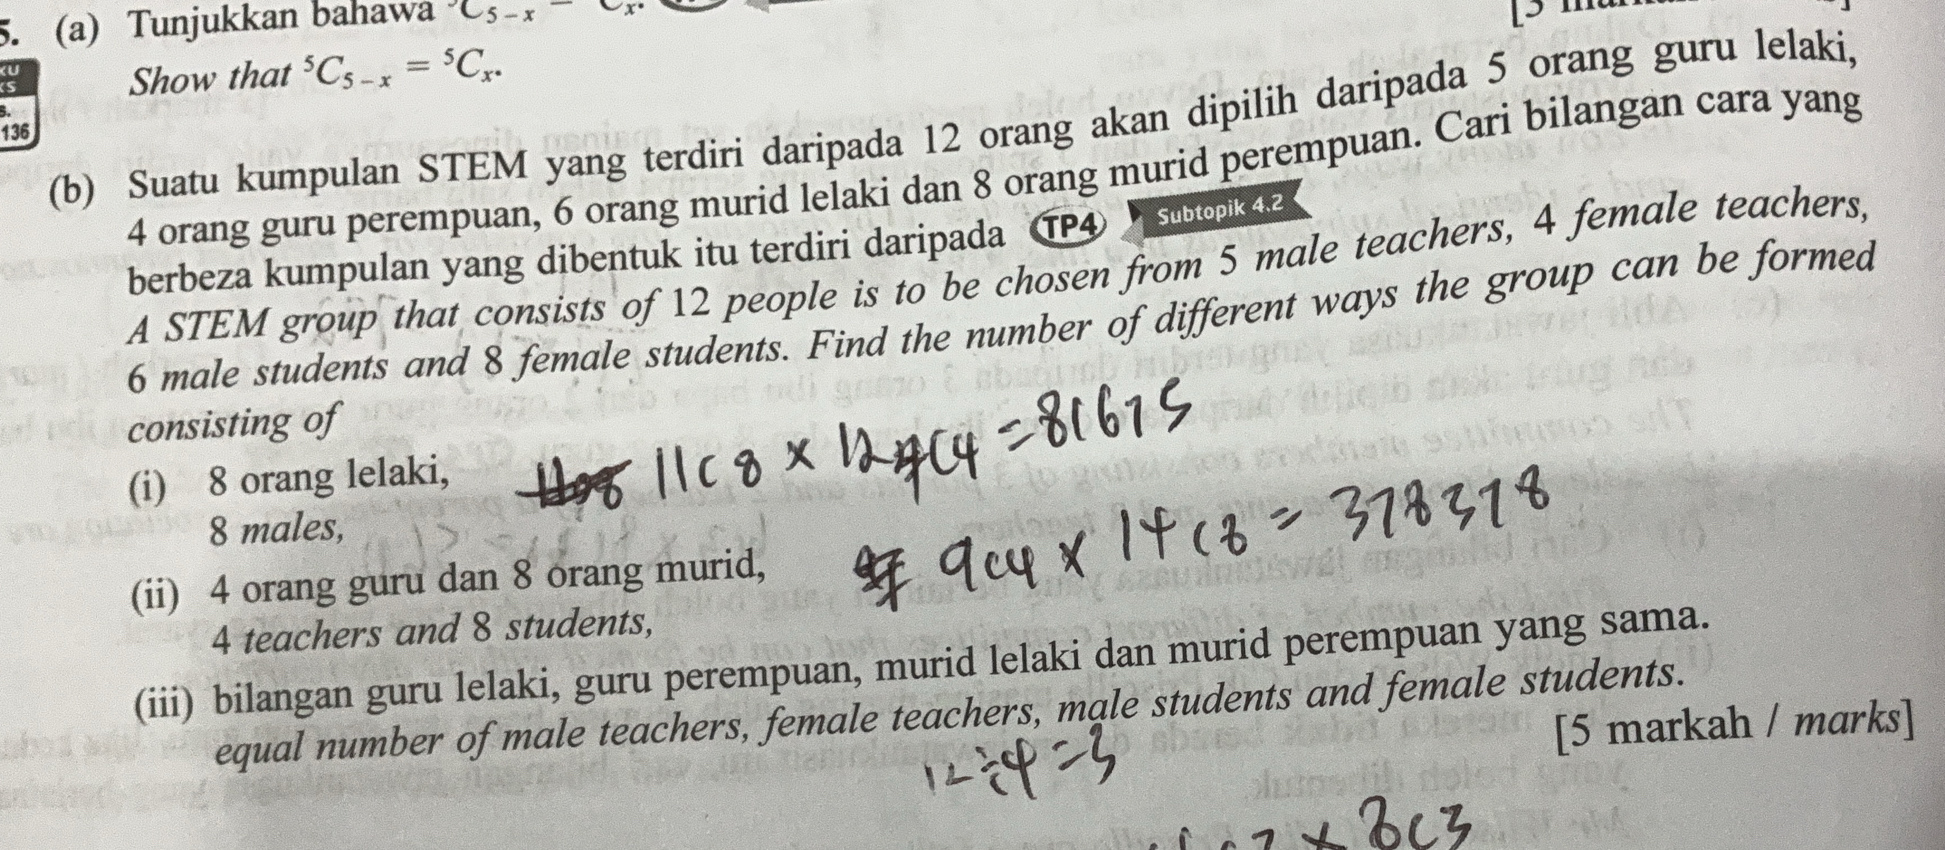 5. (a) Tunjukkan bahawa ⁵C₅₋ₓ = Cₓ.
[3
Show that ⁵C₅₋ₓ = ⁵Cₓ.
KU
KS
S.
136
(b) Suatu kumpulan STEM yang terdiri daripada 12 orang akan dipilih daripada 5 orang guru lelaki,
4 orang guru perempuan, 6 orang murid lelaki dan 8 orang murid perempuan. Cari bilangan cara yang
berbeza kumpulan yang dibentuk itu terdiri daripada TP4 Subtopik 4.2
A STEM group that consists of 12 people is to be chosen from 5 male teachers, 4 female teachers,
6 male students and 8 female students. Find the number of different ways the group can be formed
consisting of
(i) 8 orang lelaki, 11C8 × 12C4 = 81675
8 males,
(ii) 4 orang guru dan 8 orang murid, 9C4 × 14C8 = 378378
4 teachers and 8 students,
(iii) bilangan guru lelaki, guru perempuan, murid lelaki dan murid perempuan yang sama.
equal number of male teachers, female teachers, male students and female students.
[5 markah / marks]
12÷4=3
× 8C3